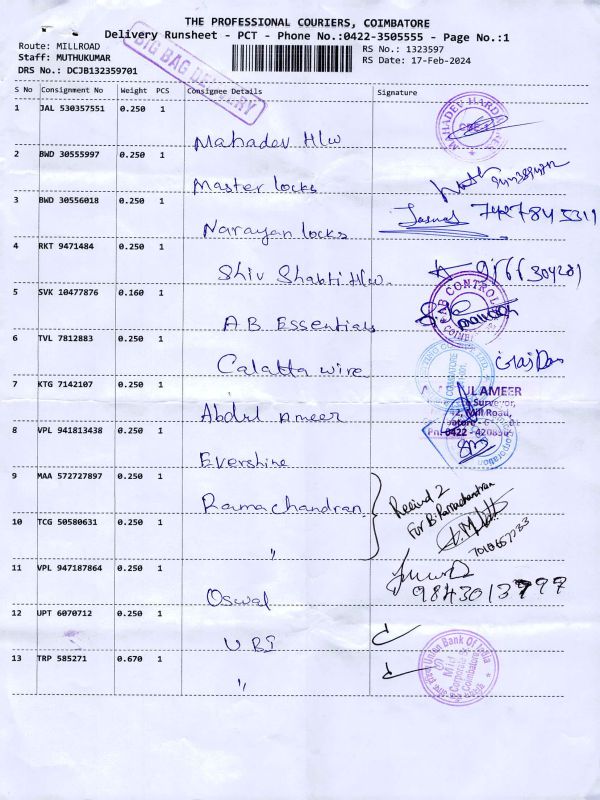 THE PROFESSIONAL COURIERS, COIMBATORE
Delivery Runsheet - PCT - Phone No.:0422-3505555 - Page No.:1
Route: MILLROAD
Staff: MUTHUKUMAR
DRS No.: DCJB132359701
BIG BAG DELIVERY
RS No.: 1323597
RS Date: 17-Feb-2024
S No Consignment No Weight PCS Consignee Details Signature
1 JAL 530357551 0.250 1 Mahadev H/w
MAHADEV HARD
2 BWD 30555997 0.250 1 Master locks
3 BWD 30556018 0.250 1 Narayan locks
4 RKT 9471484 0.250 1 Shiv Shakti H/w.
5 SVK 10477876 0.160 1 A.B. Essentials
AB CONTROL
6 TVL 7812883 0.250 1 Calcutta wire
7 KTG 7142107 0.250 1 Abdul Ameer
UL AMEER
Surveyor,
Mill Road,
Ph: 0422 -
8 VPL 941813438 0.250 1 Evershine
9 MAA 572727897 0.250 1 Ramachandran
Recived 2
For B. Ramachandran
10 TCG 50580631 0.250 1 "
11 VPL 947187864 0.250 1 Oswal
12 UPT 6070712 0.250 1 UBI
13 TRP 585271 0.670 1 "
Union Bank Of India
Mid
Corporate
Coimbatore